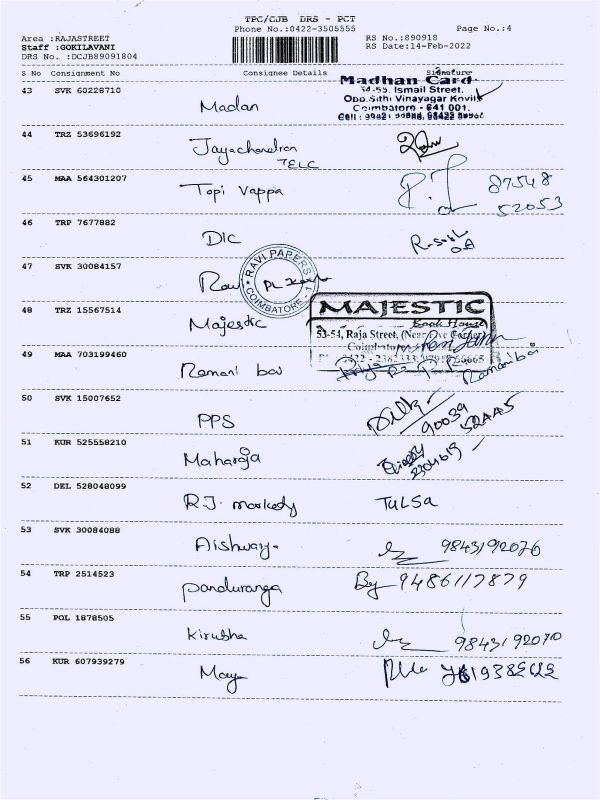 TPC/CJB DRS - PCT
Phone No.:0422-3505555 Page No.:4
Area :RAJASTREET RS No.:890918
Staff :GOKILAVANI RS Date:14-Feb-2022
DRS No. :DCJB89091804
S No Consignment No Consignee Details Signature
43 SVK 60228710 Madan
Madhan Card
34-55, Ismail Street,
Opp.Sithi Vinayagar Kovil
Coimbatore - 641 001.
44 TRZ 53696192 Jayachandran
TELC
45 MAA 564301207 Topi Vappa 87548
52053
46 TRP 7677882 DIC
47 SVK 30084157 Ravi
RAVI PAPERS
COIMBATORE - 1
48 TRZ 15567514 Majestic
MAJESTIC
Book House
53-54, Raja Street,
49 MAA 703199460 Ramani bai Ramanibai
50 SVK 15007652 PPS 90039
52445
51 KUR 525558210 Maharaja
52 DEL 528048099 R.J. TULSA
53 SVK 30084088 Aishwarya 9843192076
54 TRP 2514523 Panduranga 9486117879
55 POL 1878505 Kirubha 9843192070
56 KUR 607939279